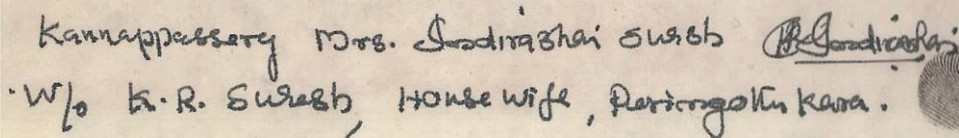 Kannappassery Mrs. Indirabhai Suresh Indirabhai
W/o K. R. Suresh, House wife, Peringottukara.